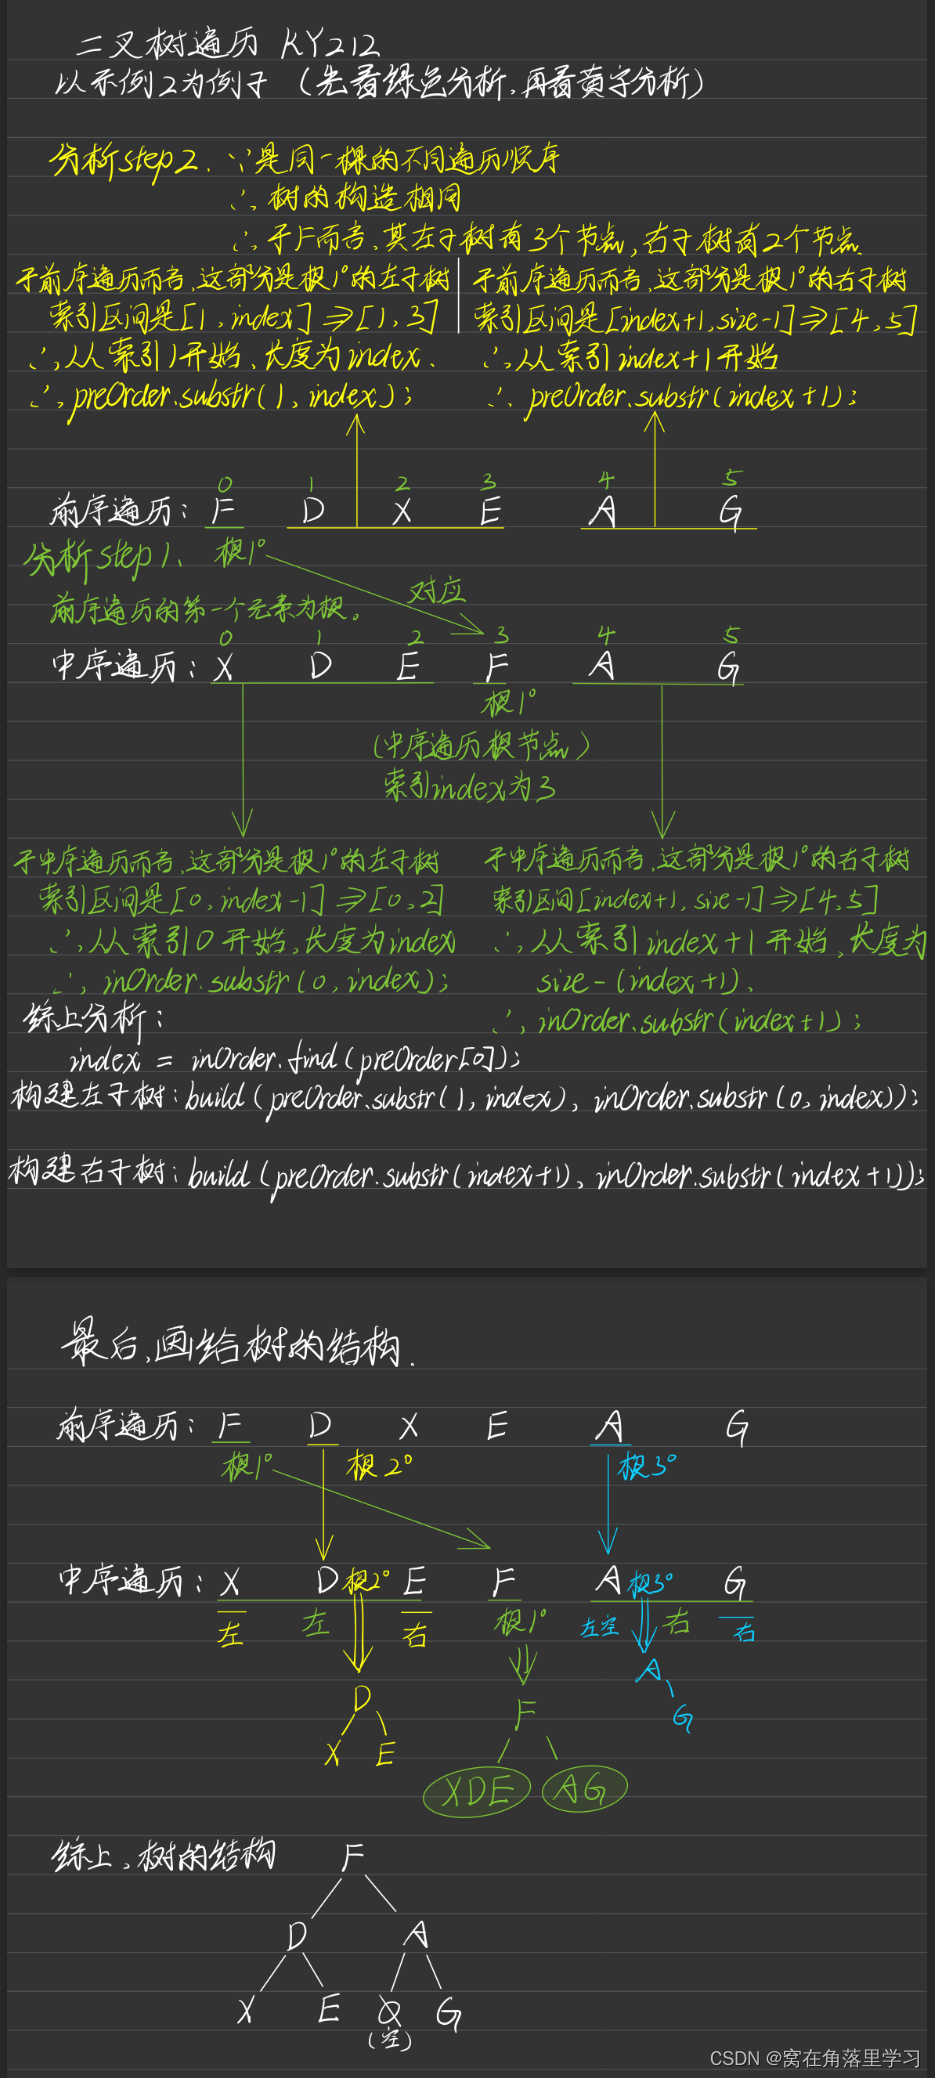 二叉树遍历 KY212
以示例2为例子 (先看绿色分析,再看黄字分析)
分析step2. ∵是同一棵的不同遍历顺序
∴树的构造相同
∴于F而言,其左子树有3个节点,右子树有2个节点.
于前序遍历而言,这部分是根1°的左子树
索引区间是[1, index] ⇒ [1, 3]
∴从索引1开始,长度为index.
∴preOrder.substr(1, index);
于前序遍历而言,这部分是根1°的右子树
索引区间是[index+1, size-1] ⇒ [4, 5]
∴从索引index+1开始
∴preOrder.substr(index+1);
0 1 2 3 4 5
前序遍历: F D X E A G
分析step1、 根1°
对应
前序遍历的第一个元素为根。
0 1 2 3 4 5
中序遍历: X D E F A G
根1°
(中序遍历根节点)
索引index为3
于中序遍历而言,这部分是根1°的左子树
索引区间是[0, index-1] ⇒ [0, 2]
∴从索引0开始,长度为index
∴inOrder.substr(0, index);
于中序遍历而言,这部分是根1°的右子树
索引区间[index+1, size-1] ⇒ [4, 5]
∴从索引index+1开始,长度为
size-(index+1).
∴inOrder.substr(index+1);
综上分析:
index = inOrder.find(preOrder[0]);
构建左子树: build(preOrder.substr(1, index), inOrder.substr(0, index));
构建右子树: build(preOrder.substr(index+1), inOrder.substr(index+1));
最后,画给树的结构.
前序遍历: F D X E A G
根1° 根2° 根3°
中序遍历: X D 根2° E F A 根3° G
左 左 右 根1° 左空 右 右
A
D G
F
X E
XDE AG
综上,树的结构 F
D A
X E Q G
(空)
CSDN @窝在角落里学习